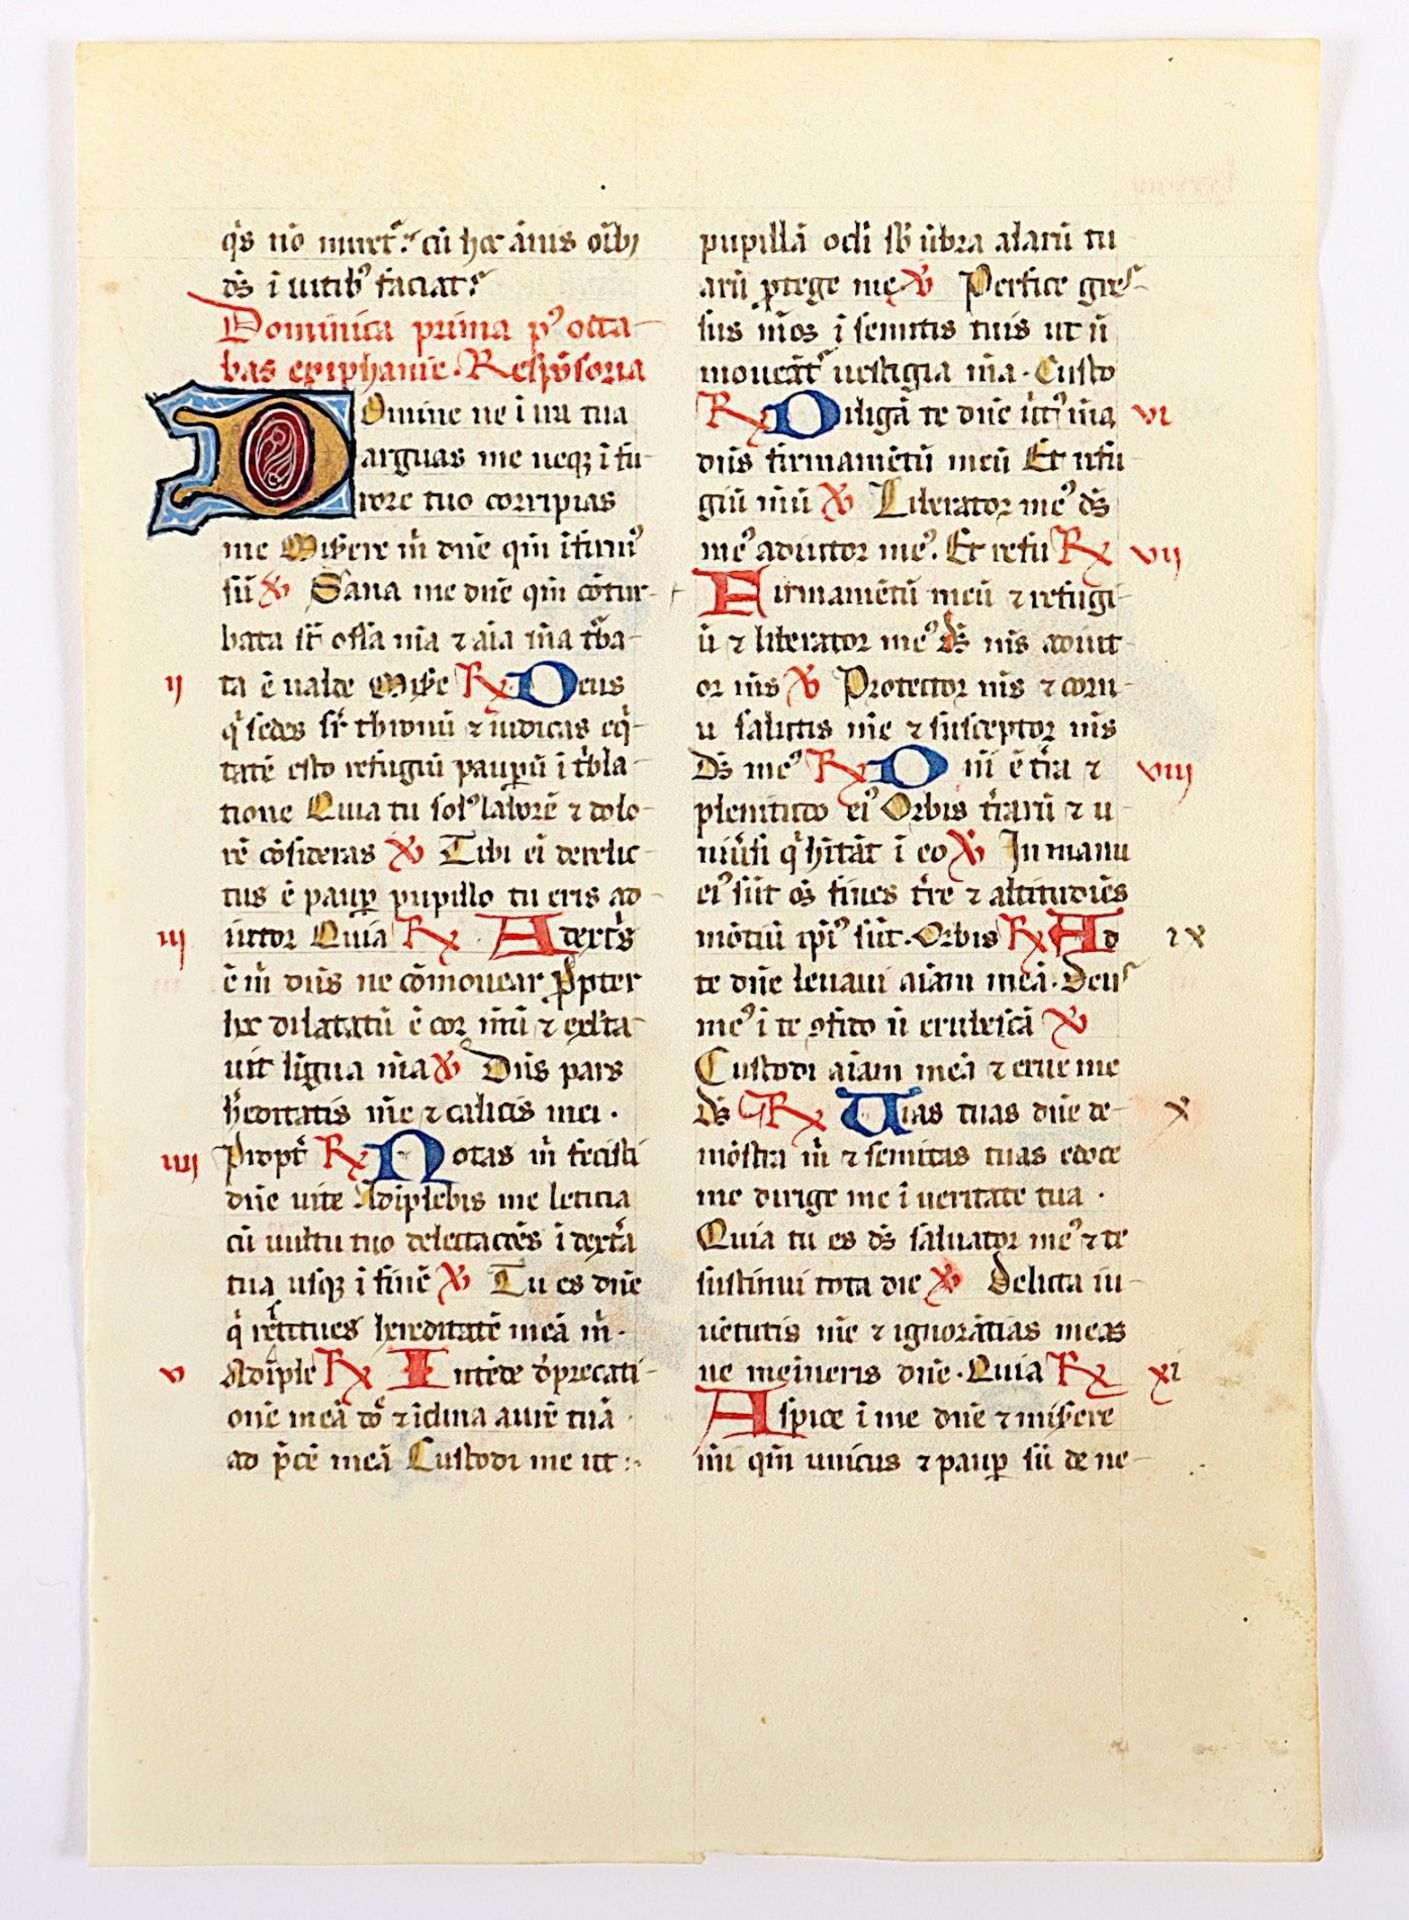 q̇s nō miret᷑ cū hec āīus oīb;
ds̄ ī uitib᷒ faciat᷑
Dominica prima p᷒ octa-
bas epiphanie. Respōsoria
Domine ne ī ira tua
arguas me neqꝫ ī fu-
rore tuo corripias
me Mis̄ere m̄ dn̄e qm̄ īfirm᷒
sū ℣ Sana me dn̄e qm̄ cōtur-
bata st̄ ossa m̄a ⁊ aīa m̄a tᷓba-
ij
ta ē ualde Mis̄e ℞ Deus
q̇ sedes sr̄ thronū ⁊ iudicas eq̇-
tatē esto refugiū pauꝑū ī tīбla-
tione Quia tu sol᷒ laborē ⁊ dolo-
rē cōsideras ℣ Tibi eī derelic-
tus ē pauꝑ pupillo tu eris ad-
iij
iutor Quia ℞ A dext̄s
ē m̄ dn̄s ne cōmouear ꝓpter
hc dilatatū ē cor m̄ū ⁊ exl̄ta-
uit līgua m̄a ℣ Dn̄s pars
h̄editatis m̄e ⁊ calicis mei .
iiij
Propt̄ ℞ Notas m̄ fecisti
dn̄e uite Adīplebis me leticia
cū uultu tuo delectacōēs ī dext̄a
tua usqꝫ ī finē ℣ Tu es dn̄e
q̇ rēstitues hereditatē meā m̄.
v
Adīple ℞ Intēde d̄precati-
onē meā dn̄e ⁊ īclina aurē tuā
ad p̄cē meā Custodi me ut
pupillā oc̄li sb̄ ūbra alarū tu
arū ꝓtege me ℣ Perfice gres-
sus m̄os ī semitis tuis ut n̄
moueāt᷑ uestigia m̄a. Custo
℞ Diligā te dn̄e ūt᷒ m̄a vi
dn̄s firmamētū meū Et refu
giū m̄ū ℣ Liberator me᷒ ds̄
me᷒ adiutor me᷒. Et refu ℞ vij
Firmamētū meū ⁊ refugi-
ū ⁊ liberator me᷒ ds̄ m̄s adiut-
or m̄s ℣ Protector m̄s ⁊ corn-
u salutis m̄e ⁊ susceptor m̄s
Ds̄ me᷒ ℞ Dn̄i ē tr̄a ⁊ viij
plenitudo ei᷒ Orbis tr̄arū ⁊ u-
niūsi q̇ h̄itāt ī eo ℣ In manu
ei᷒ sūt os̄ fines tr̄re ⁊ altitudīēs
mōtiū ip̄i᷒ sūt. Orbis ℞ Ad ix
te dn̄e leuaui aīam meā. Deus
me᷒ ī te ꝯfido n̄ erubescā ℣
Custodi aīam meā ⁊ erue me
ds̄ ℞ Uias tuas dn̄e de- x
mōstra m̄ ⁊ semitas tuas edoce
me dirige me ī ueritate tua .
Quia tu es ds̄ saluator me᷒ ⁊ te
sustinui tota die ℣ Delicta iu-
uētutis m̄e ⁊ ignorātias meas
ne memīneris dn̄e. Quia ℞ xi
Aspice ī me dn̄e ⁊ mis̄ere
mi qm̄ unicus ⁊ pauꝑ sū de ne-